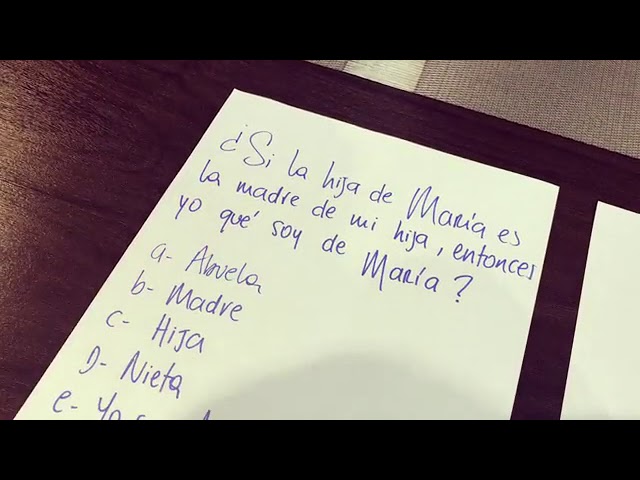 ¿Si la hija de María es
la madre de mi hija, entonces
yo qué soy de María?
a- Abuela
b- Madre
c- Hija
D- Nieta
e- Yo